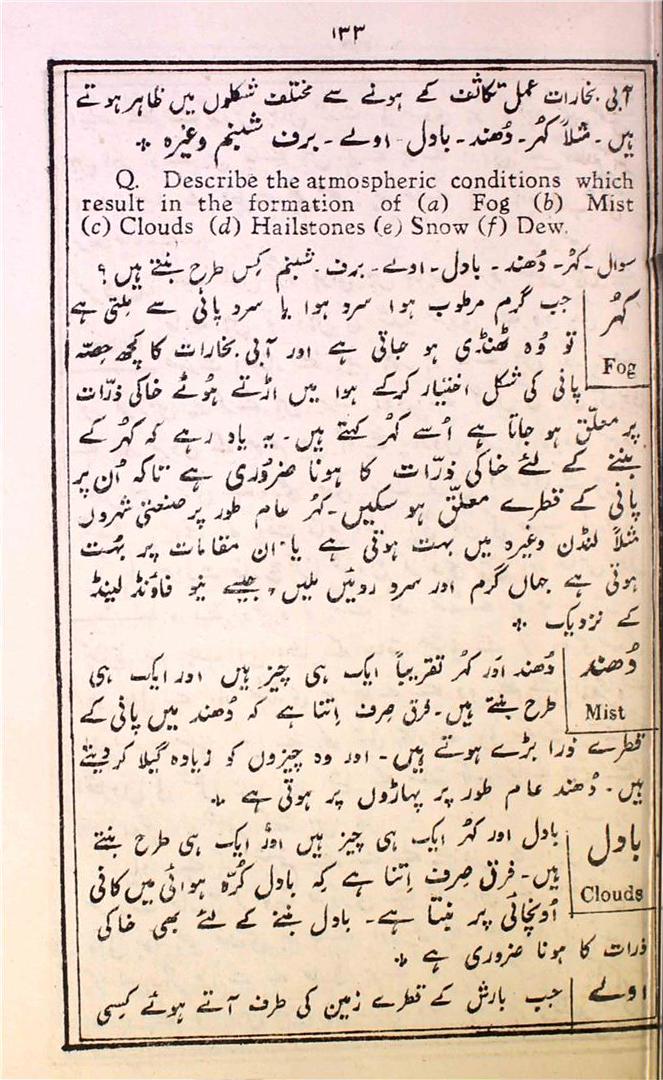 ۱۳۳
آبی بخارات عمل تکاثف کے ہونے سے مختلف شکلوں میں ظاہر ہوتے
ہیں۔ مثلاً کہُر۔ دُھند۔ بادل۔ اولے۔ برف شبنم وغیرہ ٭
Q. Describe the atmospheric conditions which
result in the formation of (a) Fog (b) Mist
(c) Clouds (d) Hailstones (e) Snow (f) Dew.
سوال۔ کہُر۔ دُھند۔ بادل۔ اولے۔ برف۔ شبنم کِس طرح بنتے ہیں؟
کہُر
Fog
جب گرم مرطوب ہوا سرد ہوا یا سرد پانی سے مِلتی ہے
تو وُہ ٹھنڈی ہو جاتی ہے اور آبی بخارات کا کچھ حِصّہ
پانی کی شکل اختیار کرکے ہوا میں اڑتے ہُوئے خاکی ذرّات
پر معلّق ہو جاتا ہے اُسے کہُر کہتے ہیں۔ یہ یاد رہے کہ کہُر کے
بننے کے لئے خاکی ذرّات کا ہونا ضرُوری ہے تاکہ اُن پر
پانی کے قطرے معلّق ہو سکیں۔ کہُر عام طور پر صنعتی شہروں
مثلاً لنڈن وغیرہ میں بہت ہوتی ہے یا ان مقامات پر بہُت
ہوتی ہے جہاں گرم اور سرد روئیں ملیں، جیسے نیو فاؤنڈ لینڈ
کے نزدیک ٭
دُھند
Mist
دُھند اور کہُر تقریباً ایک ہی چیز ہیں اور ایک ہی
طرح بنتے ہیں۔ فرق صِرف اِتنا ہے کہ دُھند میں پانی کے
قطرے ذرا بڑے ہوتے ہیں۔ اور وہ چیزوں کو زیادہ گیلا کر دیتے
ہیں۔ دُھند عام طور پر پہاڑوں پر ہوتی ہے ٭
بادل
Clouds
بادل اور کہُر ایک ہی چیز ہیں اور ایک ہی طرح بنتے
ہیں۔ فرق صِرف اِتنا ہے کہ بادل کُرّہ ہوائی میں کافی
اُونچائی پر بنتا ہے۔ بادل بننے کے لئے بھی خاکی
ذرات کا ہونا ضروری ہے ٭
اولے
جب بارش کے قطرے زمین کی طرف آتے ہوئے کِسی